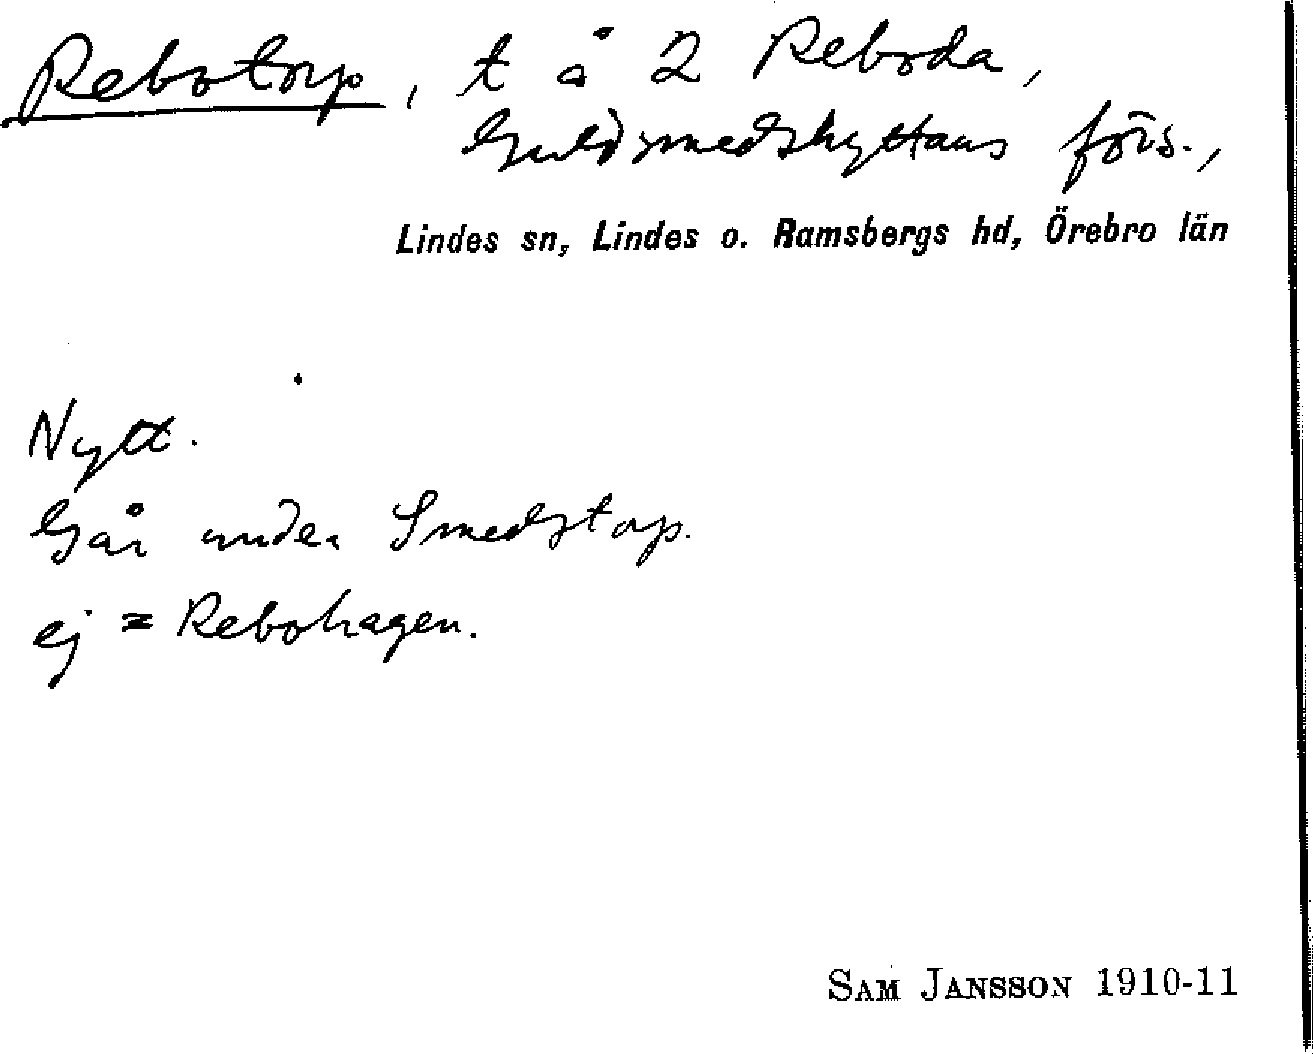 Rebotorp, t å 2 Reboda,
Guldsmedshyttans förs.,
Lindes sn, Lindes o. Ramsbergs hd, Örebro län
Nytt.
Går under Smedstorp.
ej = Rebohagen.
SAM JANSSON 1910-11